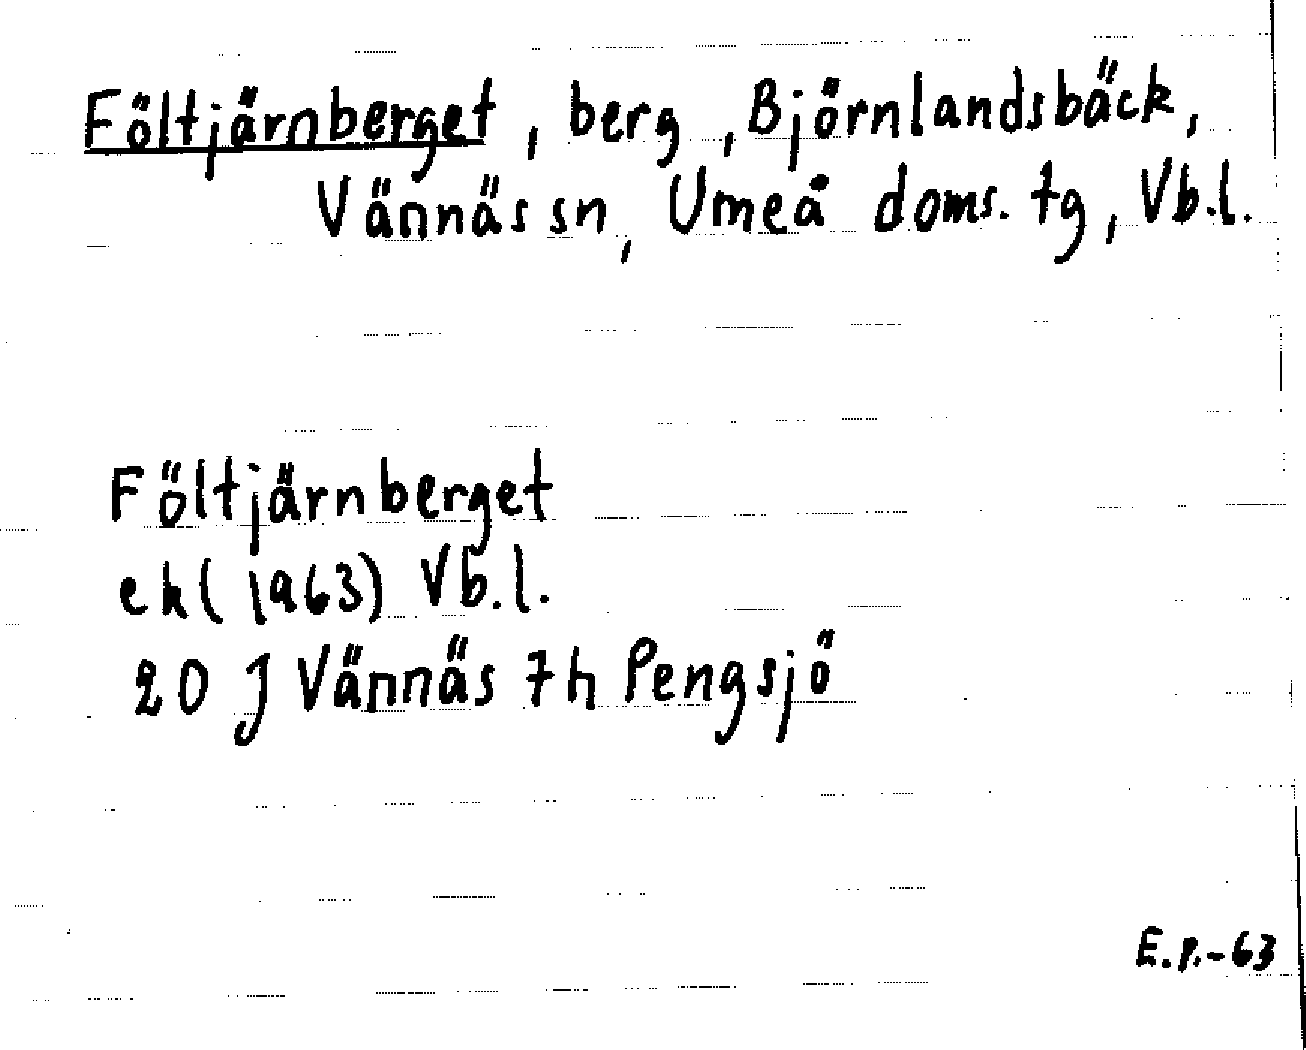 Föltjärnberget, berg, Björnlandsbäck,
Vännäs sn, Umeå doms. tg, Vb.l.
Föltjärnberget
ek(1963) Vb.l.
20 J Vännäs 7h Pengsjö
E.P.-63